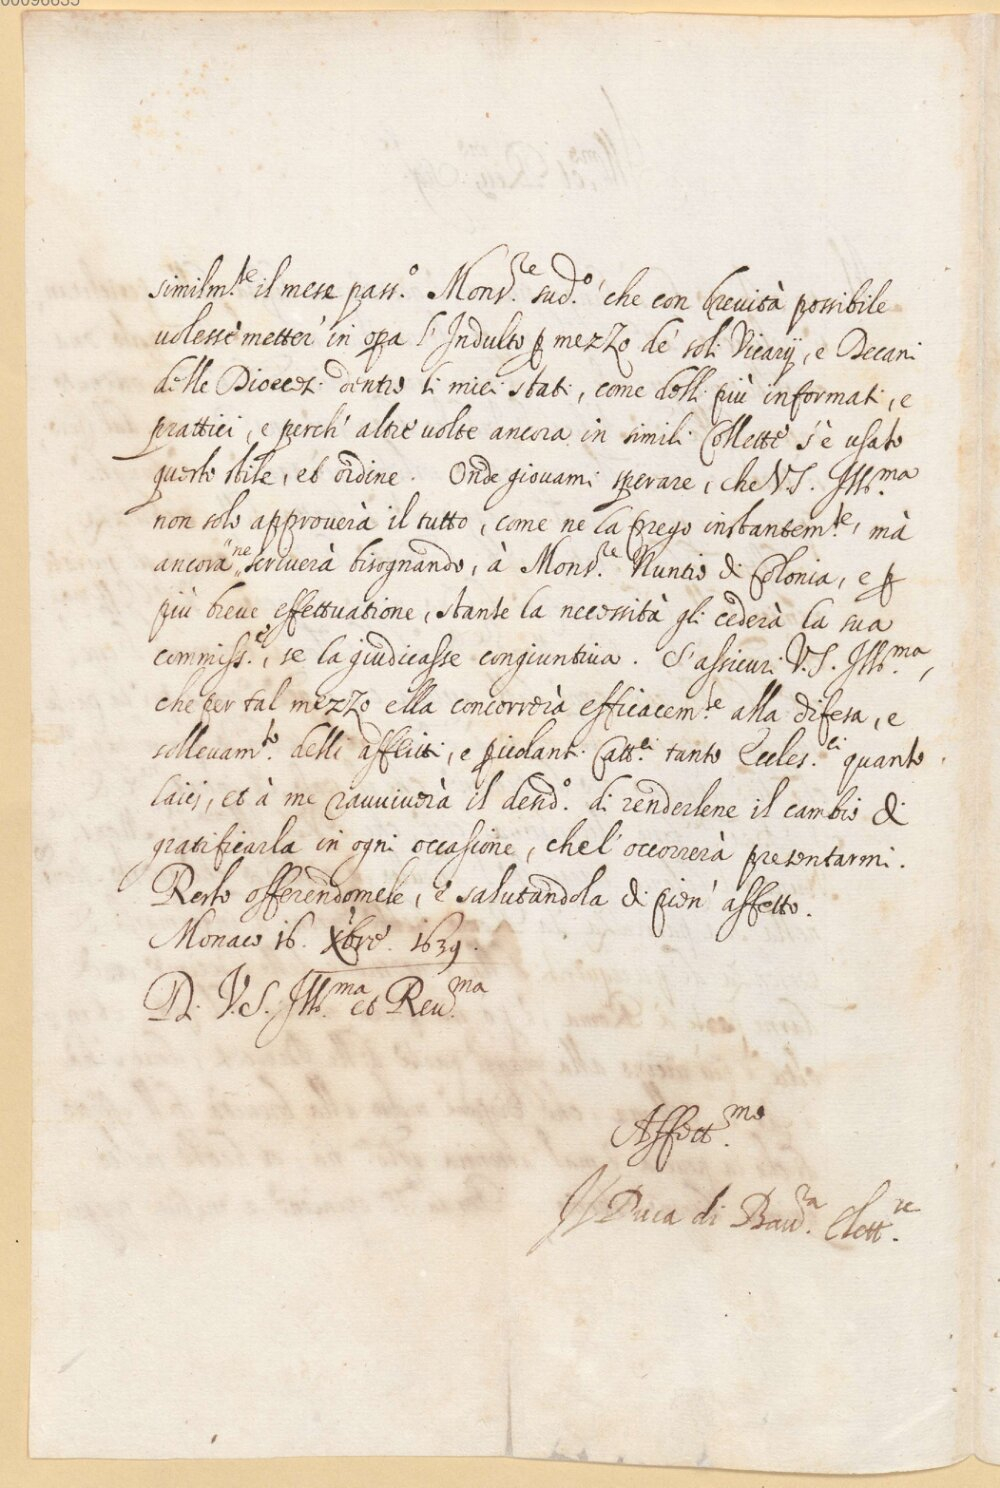 00096635
similm.te il mese pass.o Mons.re sud.o che con brevità possibile
uolesse metter' in opa l'Indulto p mezzo de' soli Vicarij, e Decani
delle Diocesi dentro li miei stati, come delli più informati, e
prattici, e perch' altre uolte ancora in simili Collette s'è usato
questo stile, et ordine. Onde giouami sperare, che V.S. Ill.ma
non solo approuerà il tutto, come ne la prego instantem.te, mà
ancora ne scriuerà bisognando, à Mons.re Nuntio di Colonia, e p
più breue effettuatione, stante la necessità gli cederà la sua
commiss.e, se la giudicasse congiuntiua. S'assicuri V.S. Ill.ma,
che per tal mezzo ella concorrerà efficacem.te alla difesa, e
solleuam.to delli afflitti, e picolanti Catt.ci tanto Eccles.ci quanto
laici, et à me rauuiuerà il desid.o di renderlene il cambio di
gratificarla in ogni occasione, che l'occorrerà presentarmi.
Resto offerendomele, e salutandola di pien' affetto.
Monaco 16. Xbre. 1639.
D. V.S. Ill.ma et Reu.ma
Affett.mo
Il Duca di Bau.ra Elett.re